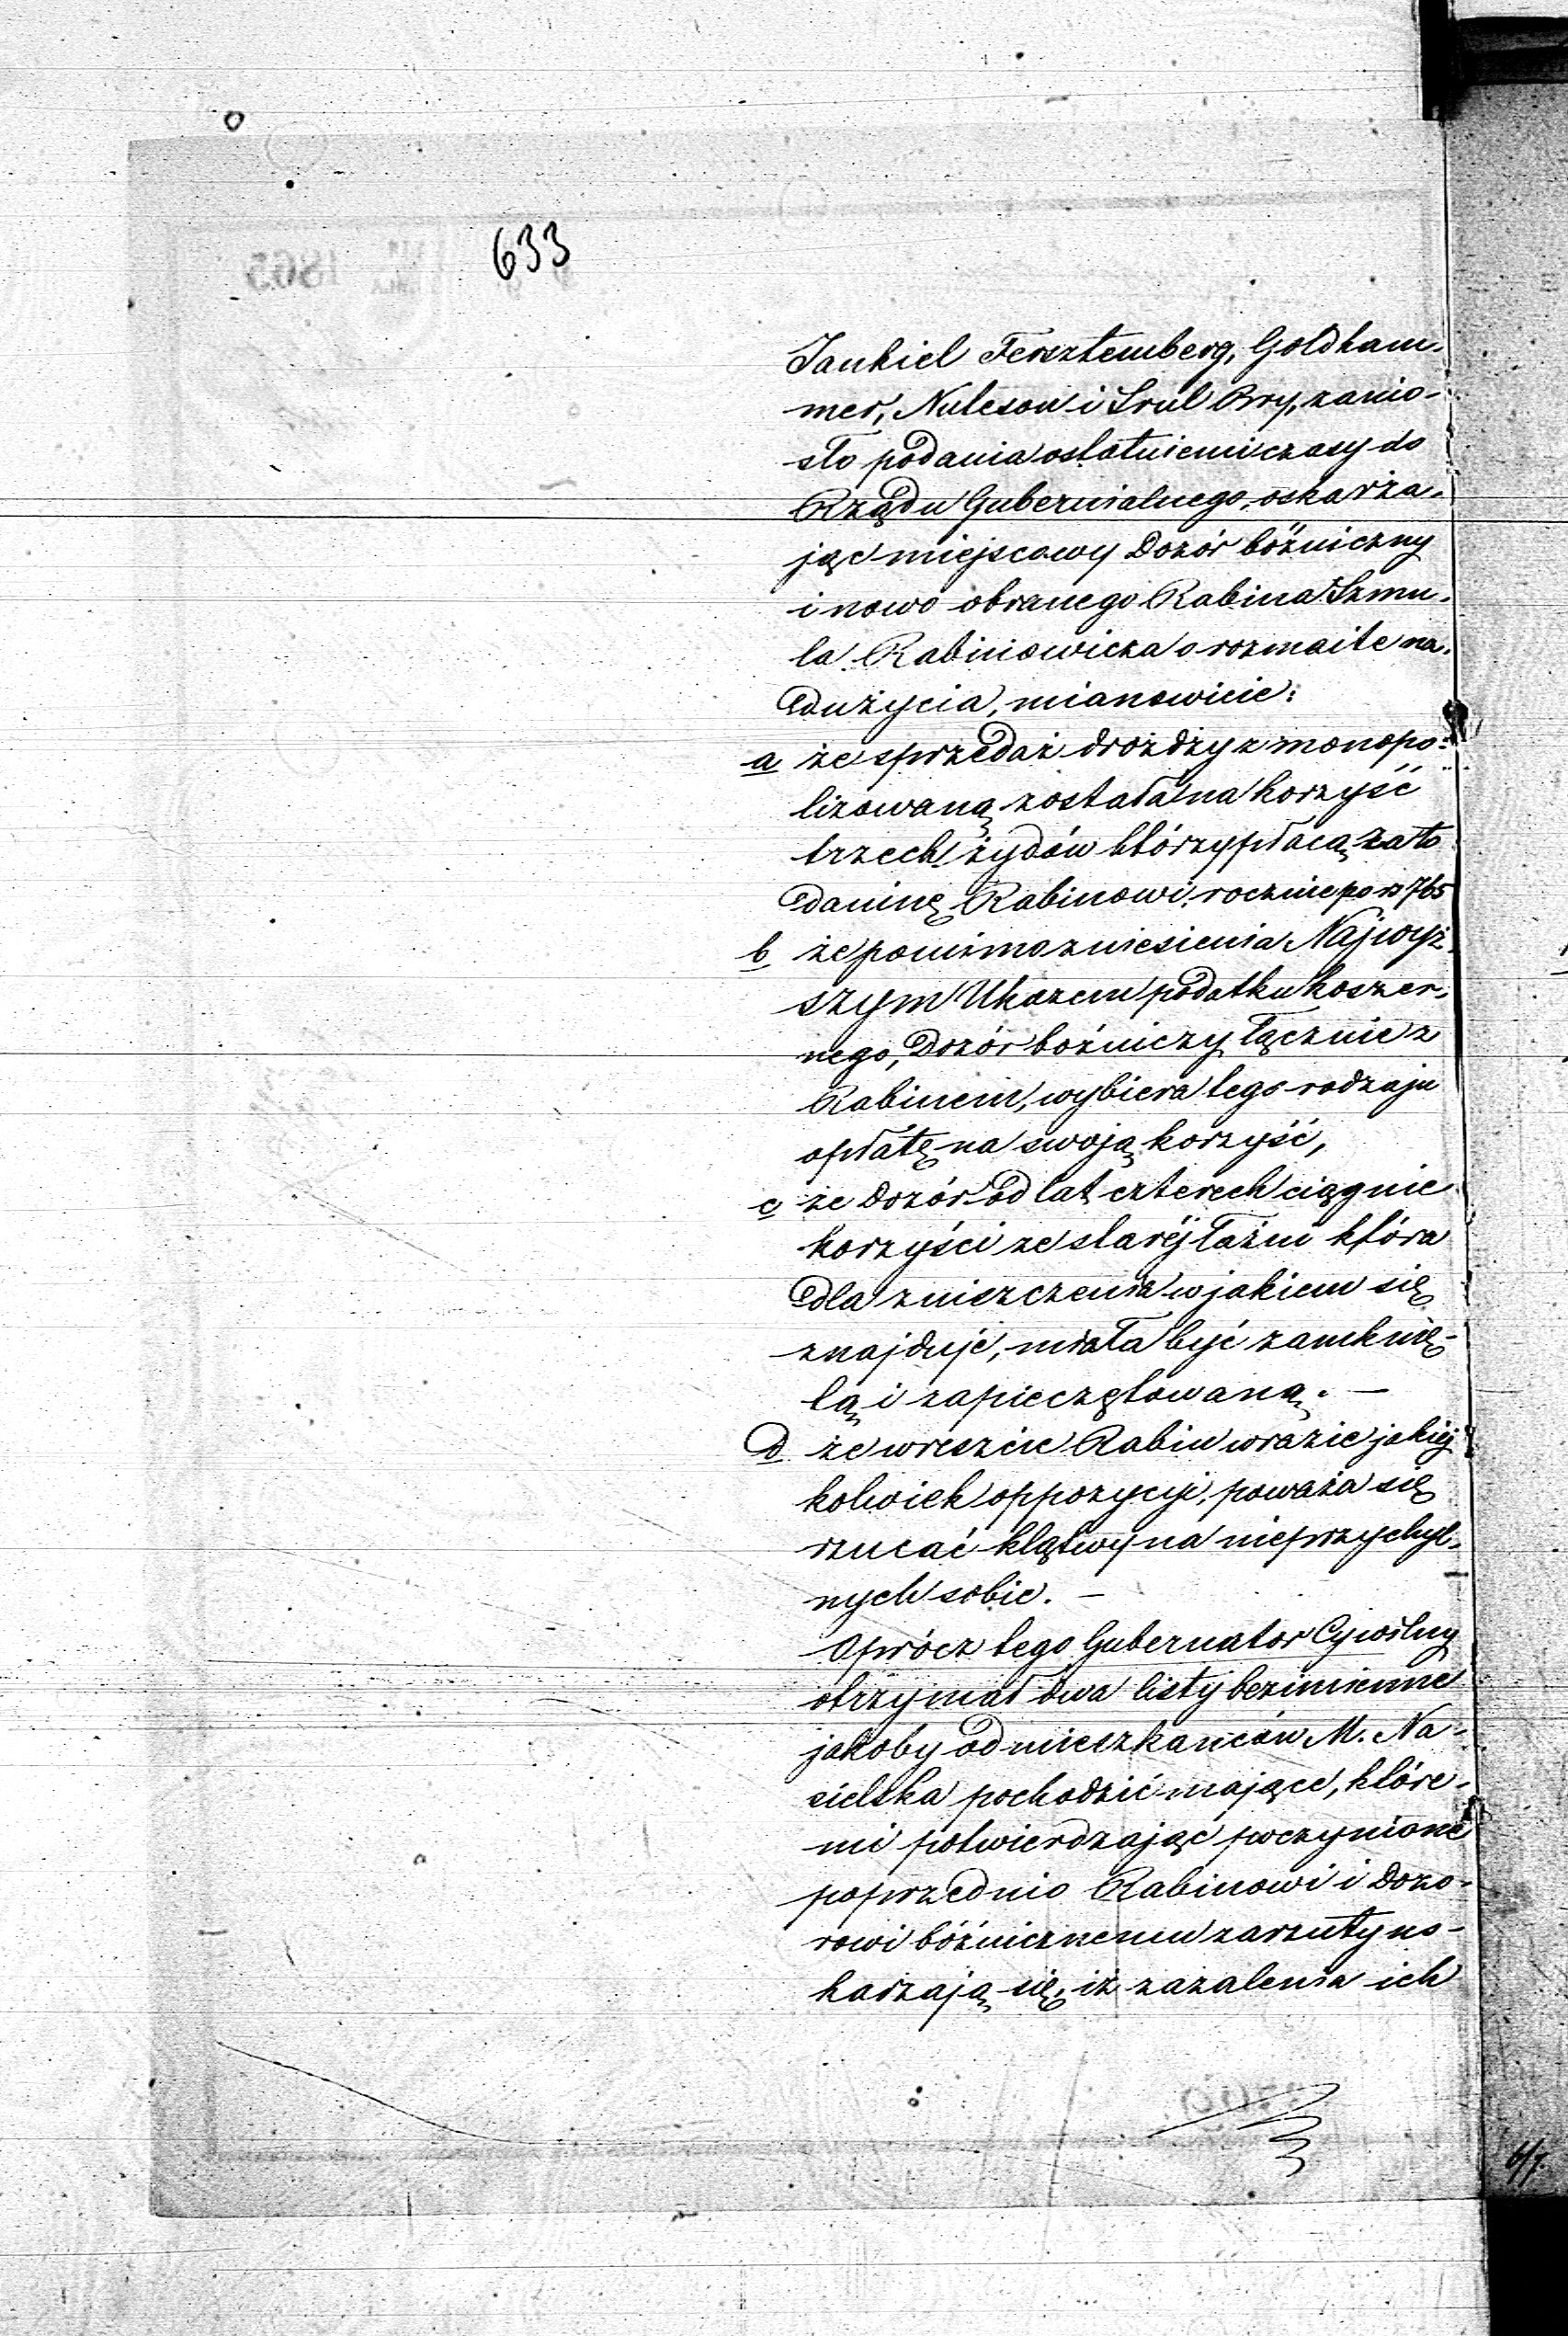 633
Jankiel Fersztemberg, Goldham-
mer, Nuleson i Srul Bry, zanio-
sło podania ostatniemi czasy do
Rządu Gubernialnego, oskarża-
jąc miejscowy Dozór bóżniczny
i nowo obranego Rabina Szmu-
la Rabinowicza o rozmaite na-
dużycia, mianowicie:
a że sprzedaż drożdży zmonopo-
lizowaną została na korzyść
trzech żydów którzy płacą za to
daninę Rabinowi rocznie po rs 765
b że pomimo zniesienia Najwyż-
szym Ukazem podatku koszer-
nego, Dozór bóżniczy łącznie z
Rabinem, wybiera tego rodzaju
opłatę na swoją korzyść,
c że Dozór od lat czterech ciągnie
korzyści ze staréj łaźni która
dla zniszczenia w jakiem się
znajduje, miała być zamknię-
tą i zapieczętowaną. —
d że wreszcie Rabin w razie jakiej
kolwiek oppozycyi, poważa się
rzucać klątwy na nieprzychyl-
nych sobie. —
Oprócz tego Gubernator Cywilny
otrzymał dwa listy bezimienne
jakoby od mieszkańców M. Na-
sielska pochodzić mające, które-
mi potwierdzając poczynione
poprzednio Rabinowi i Dozo-
rowi bóżnicznemu zarzuty us-
karżają się, iż zażalenia ich